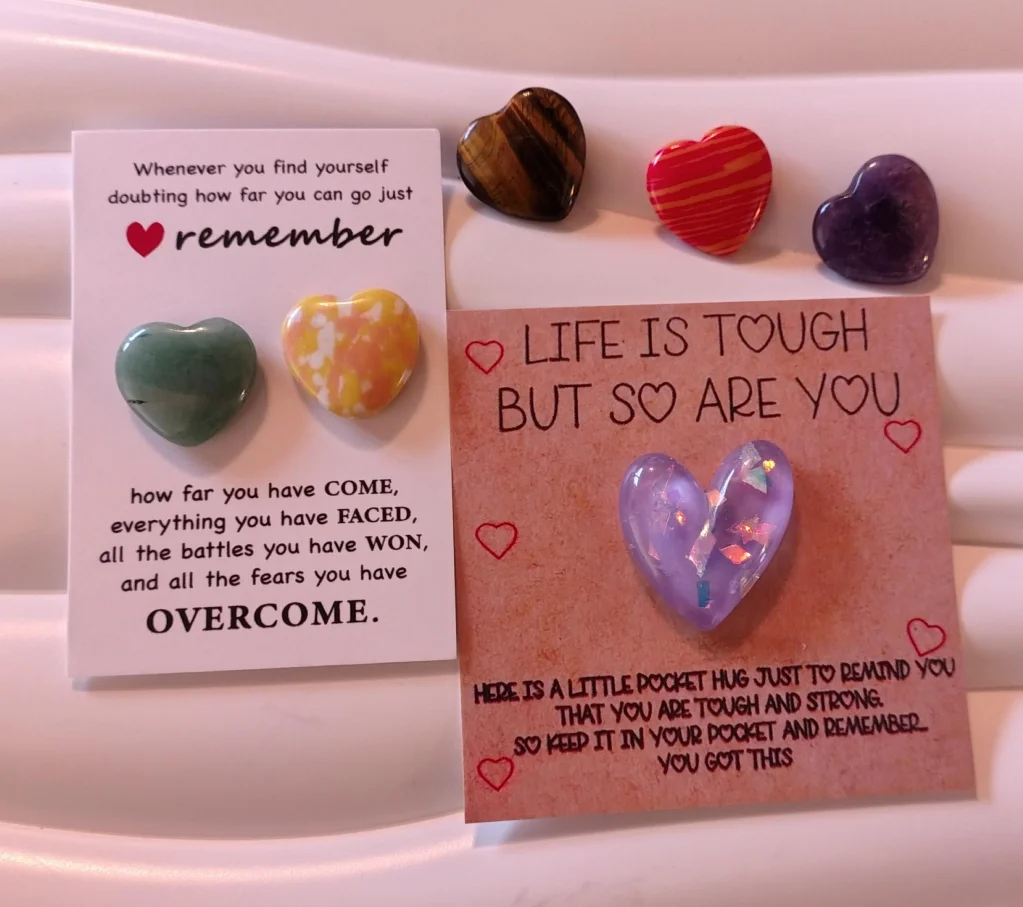 Whenever you find yourself
doubting how far you can go just
remember
how far you have COME,
everything you have FACED,
all the battles you have WON,
and all the fears you have
OVERCOME.
LIFE IS TOUGH
BUT SO ARE YOU
HERE IS A LITTLE POCKET HUG JUST TO REMIND YOU
THAT YOU ARE TOUGH AND STRONG.
SO KEEP IT IN YOUR POCKET AND REMEMBER...
YOU GOT THIS